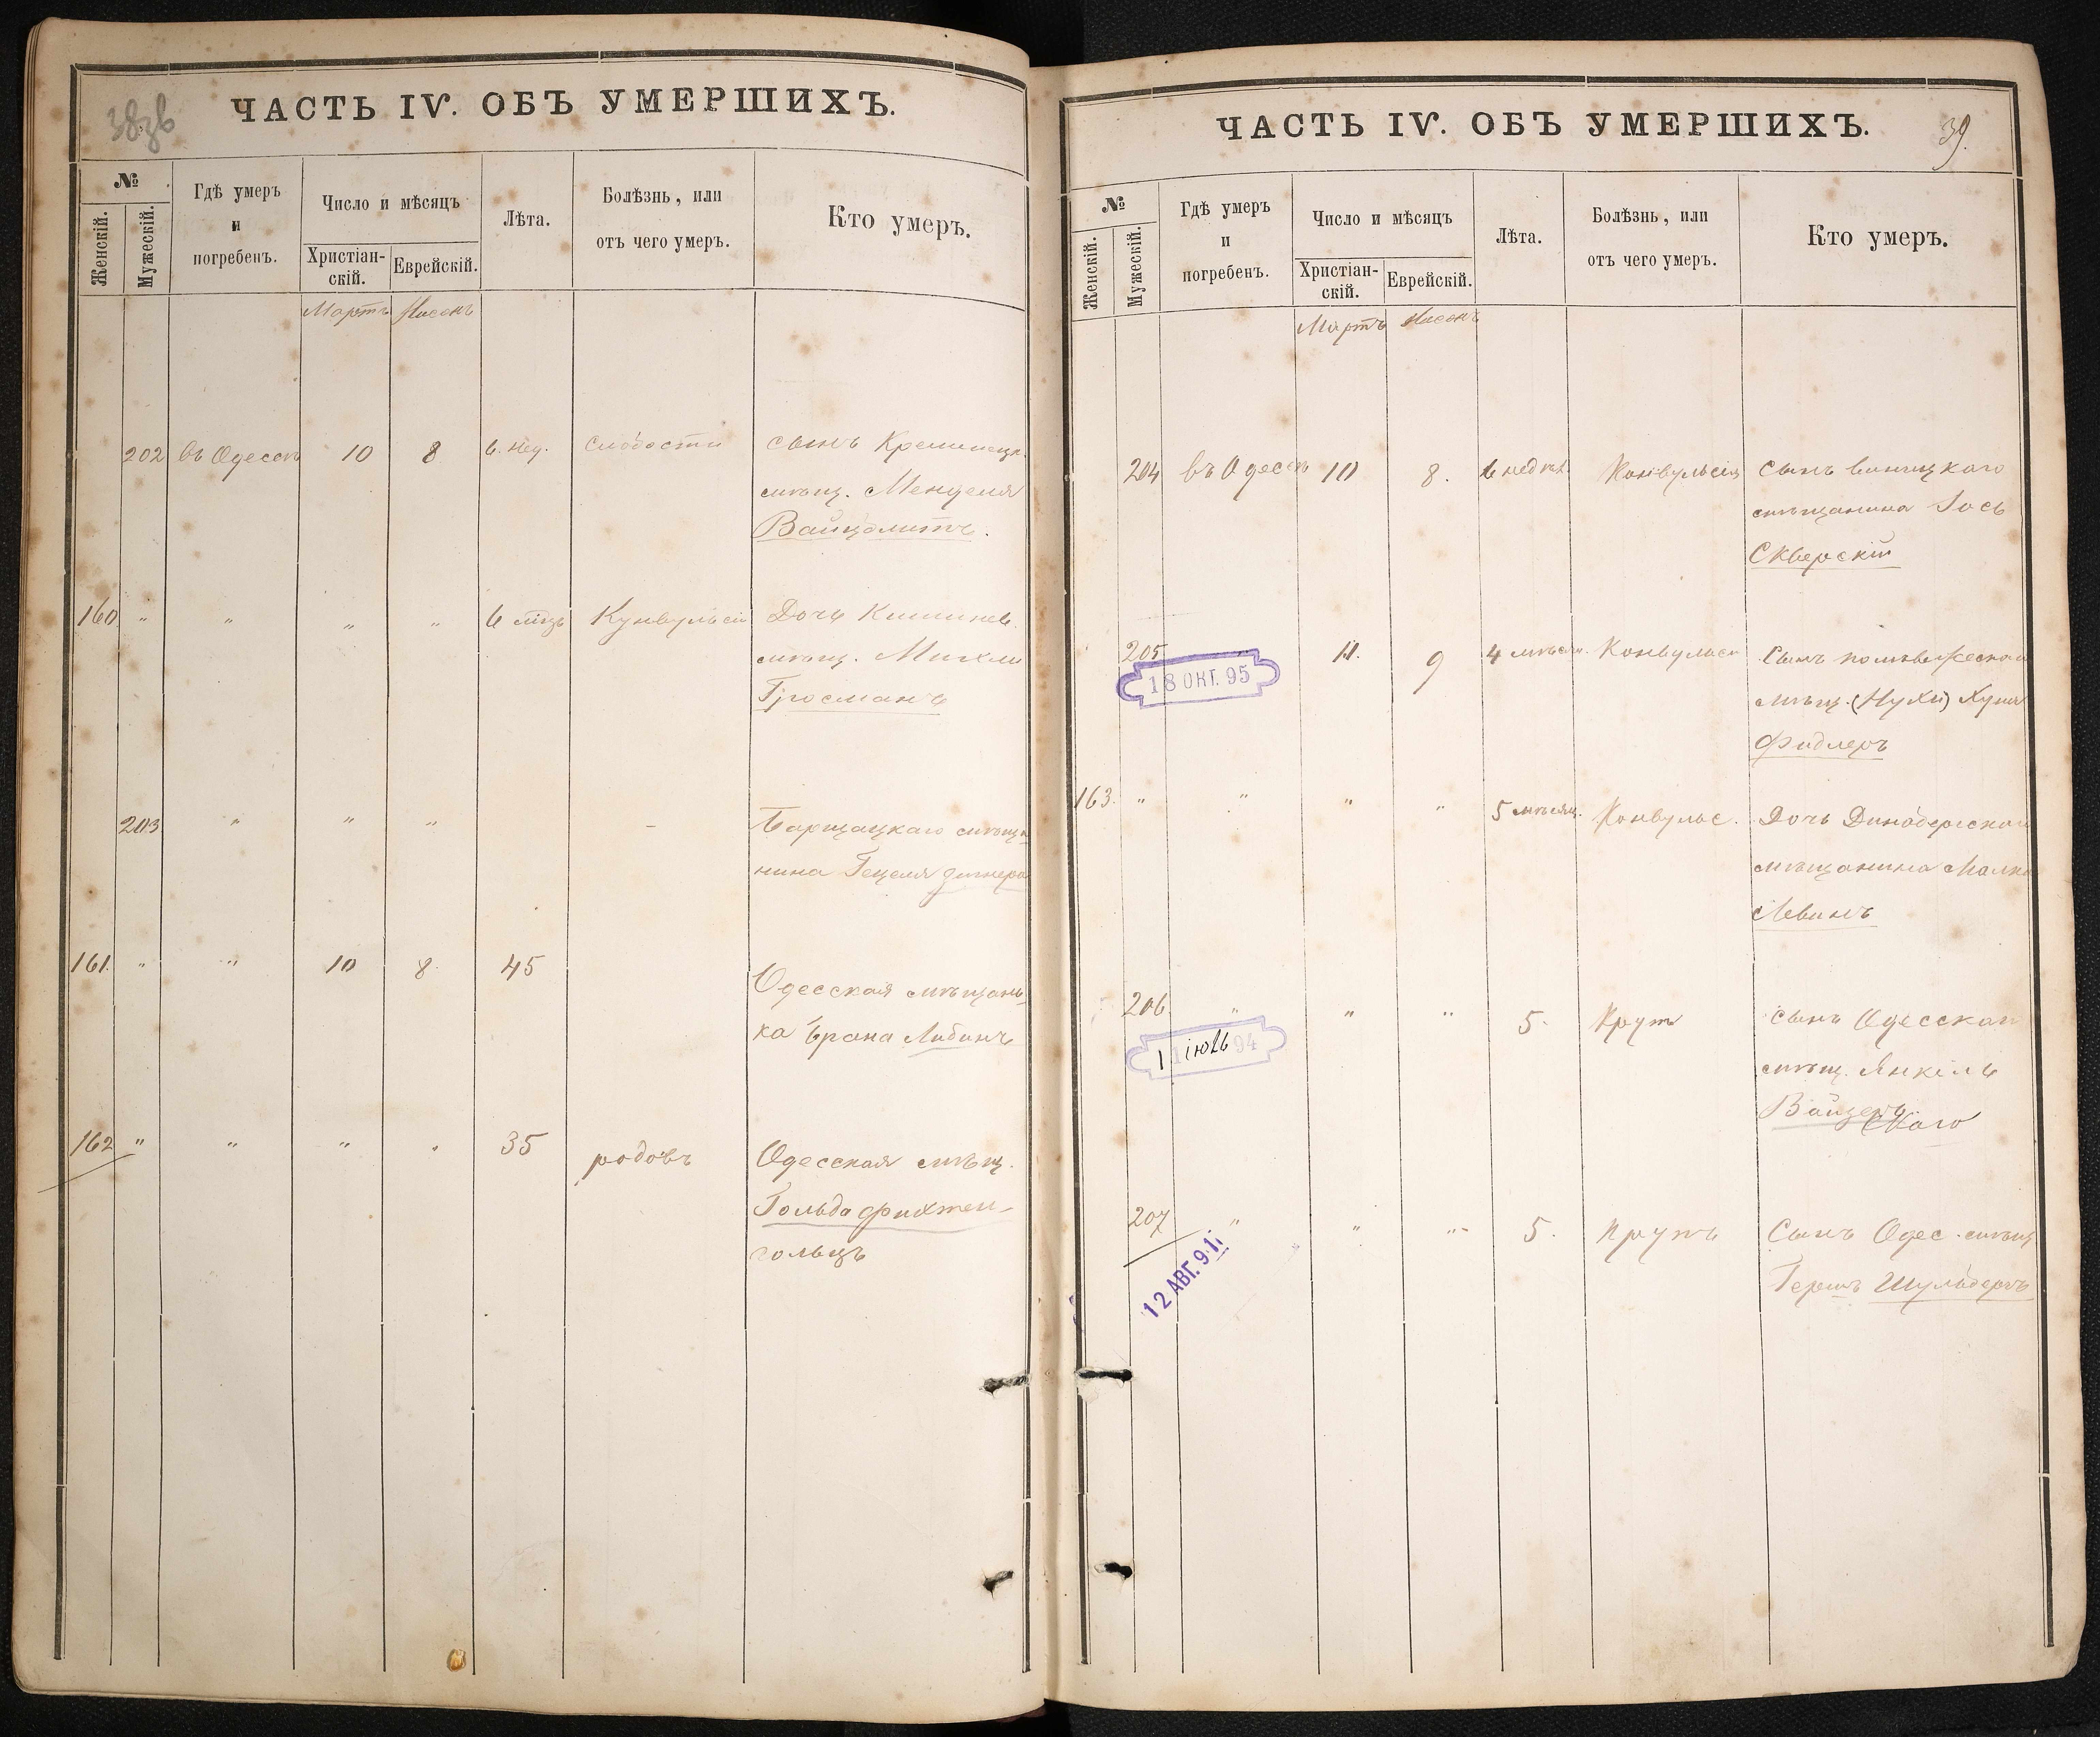 38 об
ЧАСТЬ IV. ОБЪ УМЕРШИХЪ.
№
Женскій.
Мужескій.
Гдѣ умеръ
и
погребенъ.
Число и мѣсяцъ
Христіан-
скій.
Еврейскій.
Лѣта.
Болѣзнь, или
отъ чего умеръ.
Кто умеръ.
Мартъ Нисонъ
202 въ Одессѣ 10 8 6. нед. Слабости Сынъ Кременецк.
мѣщ. Менделя
Вайцолитъ.
160 " " " " 6 мѣц Кунвульсіи Дочь Кишинев.
мѣщ. Михли
Гросманъ
203 " " " - мѣща-
нина Гецеля
161. " " 10 8. 45 Одесская мѣщан-
ка Брана Либинъ
162 " " " " 35 родовъ Одесская мѣщ.
Гольда Фихтен-
гольцъ
39.
ЧАСТЬ IV. ОБЪ УМЕРШИХЪ.
№
Женскій.
Мужескій.
Гдѣ умеръ
и
погребенъ.
Число и мѣсяцъ
Христіан-
скій.
Еврейскій.
Лѣта.
Болѣзнь, или
отъ чего умеръ.
Кто умеръ.
Мартъ Нисонъ
204 въ Одессѣ 10 8. 6 недѣл. Конвульсія Сынъ Виницкаго
мѣщанина Іось
Скверскій
205 " 11. 9 4 мѣсяц. Конвульсіи Сынъ
мѣщ. (Нухи)
Фидлеръ
18 ОКТ. 95
163. " " " " 5 мѣсяц. Конвульс. Дочь Динабергскаго
мѣщанина Малка
Левинъ
206 " " " 5. Крупъ Сынъ Одесскаго
мѣщ. Янкель
скаго
1 іюль 94
207 " " " 5. Крупъ Сынъ Одес. мѣщ
Гершъ Шульберъ
12 АВГ. 91